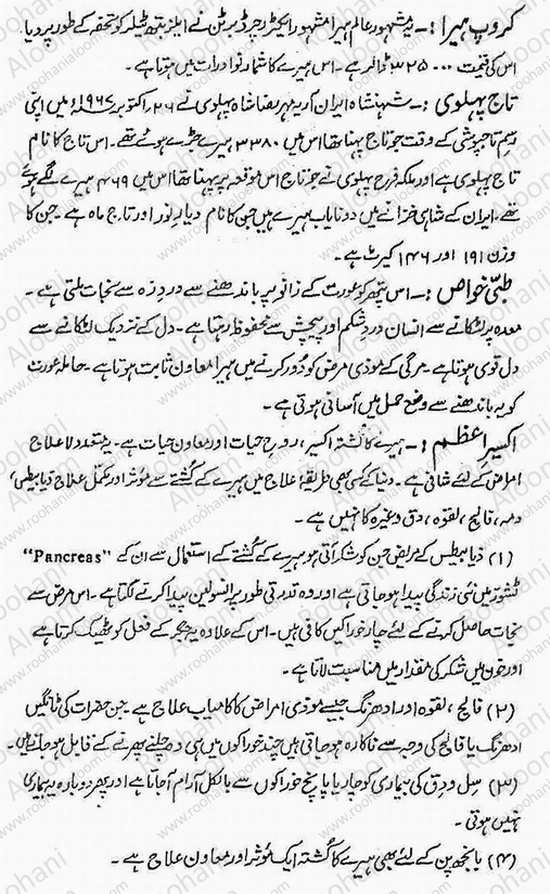 کروپ ہیرا :۔ یہ مشہور عالم ہیرا مشہور ایکٹر رچرڈ برٹن نے ایلزبتھ ٹیلر کو تحفہ کے طور پر دیا
اس کی قیمت ۳۲۵۰۰۰ ڈالر ہے۔ اس ہیرے کا شمار نوادرات میں ہوتا ہے۔
تاج پہلوی :۔ شہنشاہ ایران آریہ مہر رضا شاہ پہلوی نے ۲۶ اکتوبر ۱۹۶۷ء میں اپنی
رسم تاجپوشی کے وقت جو تاج پہنا تھا اس میں ۳۳۸۰ ہیرے جڑے ہوئے تھے۔ اس تاج کا نام
تاج پہلوی ہے اور ملکہ فرح پہلوی نے جو تاج اس موقعہ پر پہنا تھا اس میں ۴۶۹ ہیرے لگے ہوئے
تھے۔ ایران کے شاہی خزانے میں دو نایاب ہیرے ہیں جن کا نام دریا نور اور تاج ماہ ہے۔ جن کا
وزن ۱۹۱ اور ۱۴۶ کیرٹ ہے۔
طبی خواص :۔ اس پتھر کو عورت کے زانو پر باندھنے سے درد زہ سے نجات ملتی ہے۔
معدہ پر لٹکانے سے انسان درد شکم اور پیچش سے محفوظ رہتا ہے۔ دل کے نزدیک لٹکانے سے
دل قوی ہوتا ہے۔ مرگی کے موذی مرض کو دور کرنے میں ہیرا معاون ثابت ہوتا ہے۔ حاملہ عورت
کو یہ باندھنے سے وضع حمل میں آسانی ہوتی ہے۔
اکسیر اعظم :۔ ہیرے کا کشتہ اکسیر، روح حیات اور معاون حیات ہے۔ یہ متعدد لا علاج
امراض کے لئے شافی ہے۔ دنیا کے کسی بھی طریقۂ علاج میں ہیرے کے کشتے سے مؤثر اور مکمل علاج ذیابیطس،
دمہ، فالج، لقوہ، دق وغیرہ کا نہیں ہے۔
(۱) ذیابیطس کے مریض جن کو شکر آتی ہو ہیرے کے کشتے کے استعمال سے ان کے "Pancreas"
ٹشوز میں نئی زندگی پیدا ہو جاتی ہے اور وہ قدرتی طور پر انسولین پیدا کرنے لگتا ہے۔ اس مرض سے
نجات حاصل کرنے کے لئے چار خوراکیں کافی ہیں۔ اس کے علاوہ یہ جگر کے فعل کو ٹھیک کرتا ہے
اور خون میں شکر کی مقدار میں مناسبت لاتا ہے۔
(۲) فالج، لقوہ اور ادھرنگ جیسے موذی امراض کا کامیاب علاج ہے۔ جن حضرات کی ٹانگیں
ادھرنگ یا فالج کی وجہ سے ناکارہ ہو جاتی ہیں چند خوراکوں میں ہی وہ چلنے پھرنے کے قابل ہو جاتے ہیں۔
(۳) سل و دق کی بیماری کو چار یا پانچ خوراکوں سے بالکل آرام آ جاتا ہے اور پھر دوبارہ یہ بیماری
نہیں ہوتی۔
(۴) بانجھ پن کے لئے بھی ہیرے کا کشتہ ایک مؤثر اور معاون علاج ہے۔